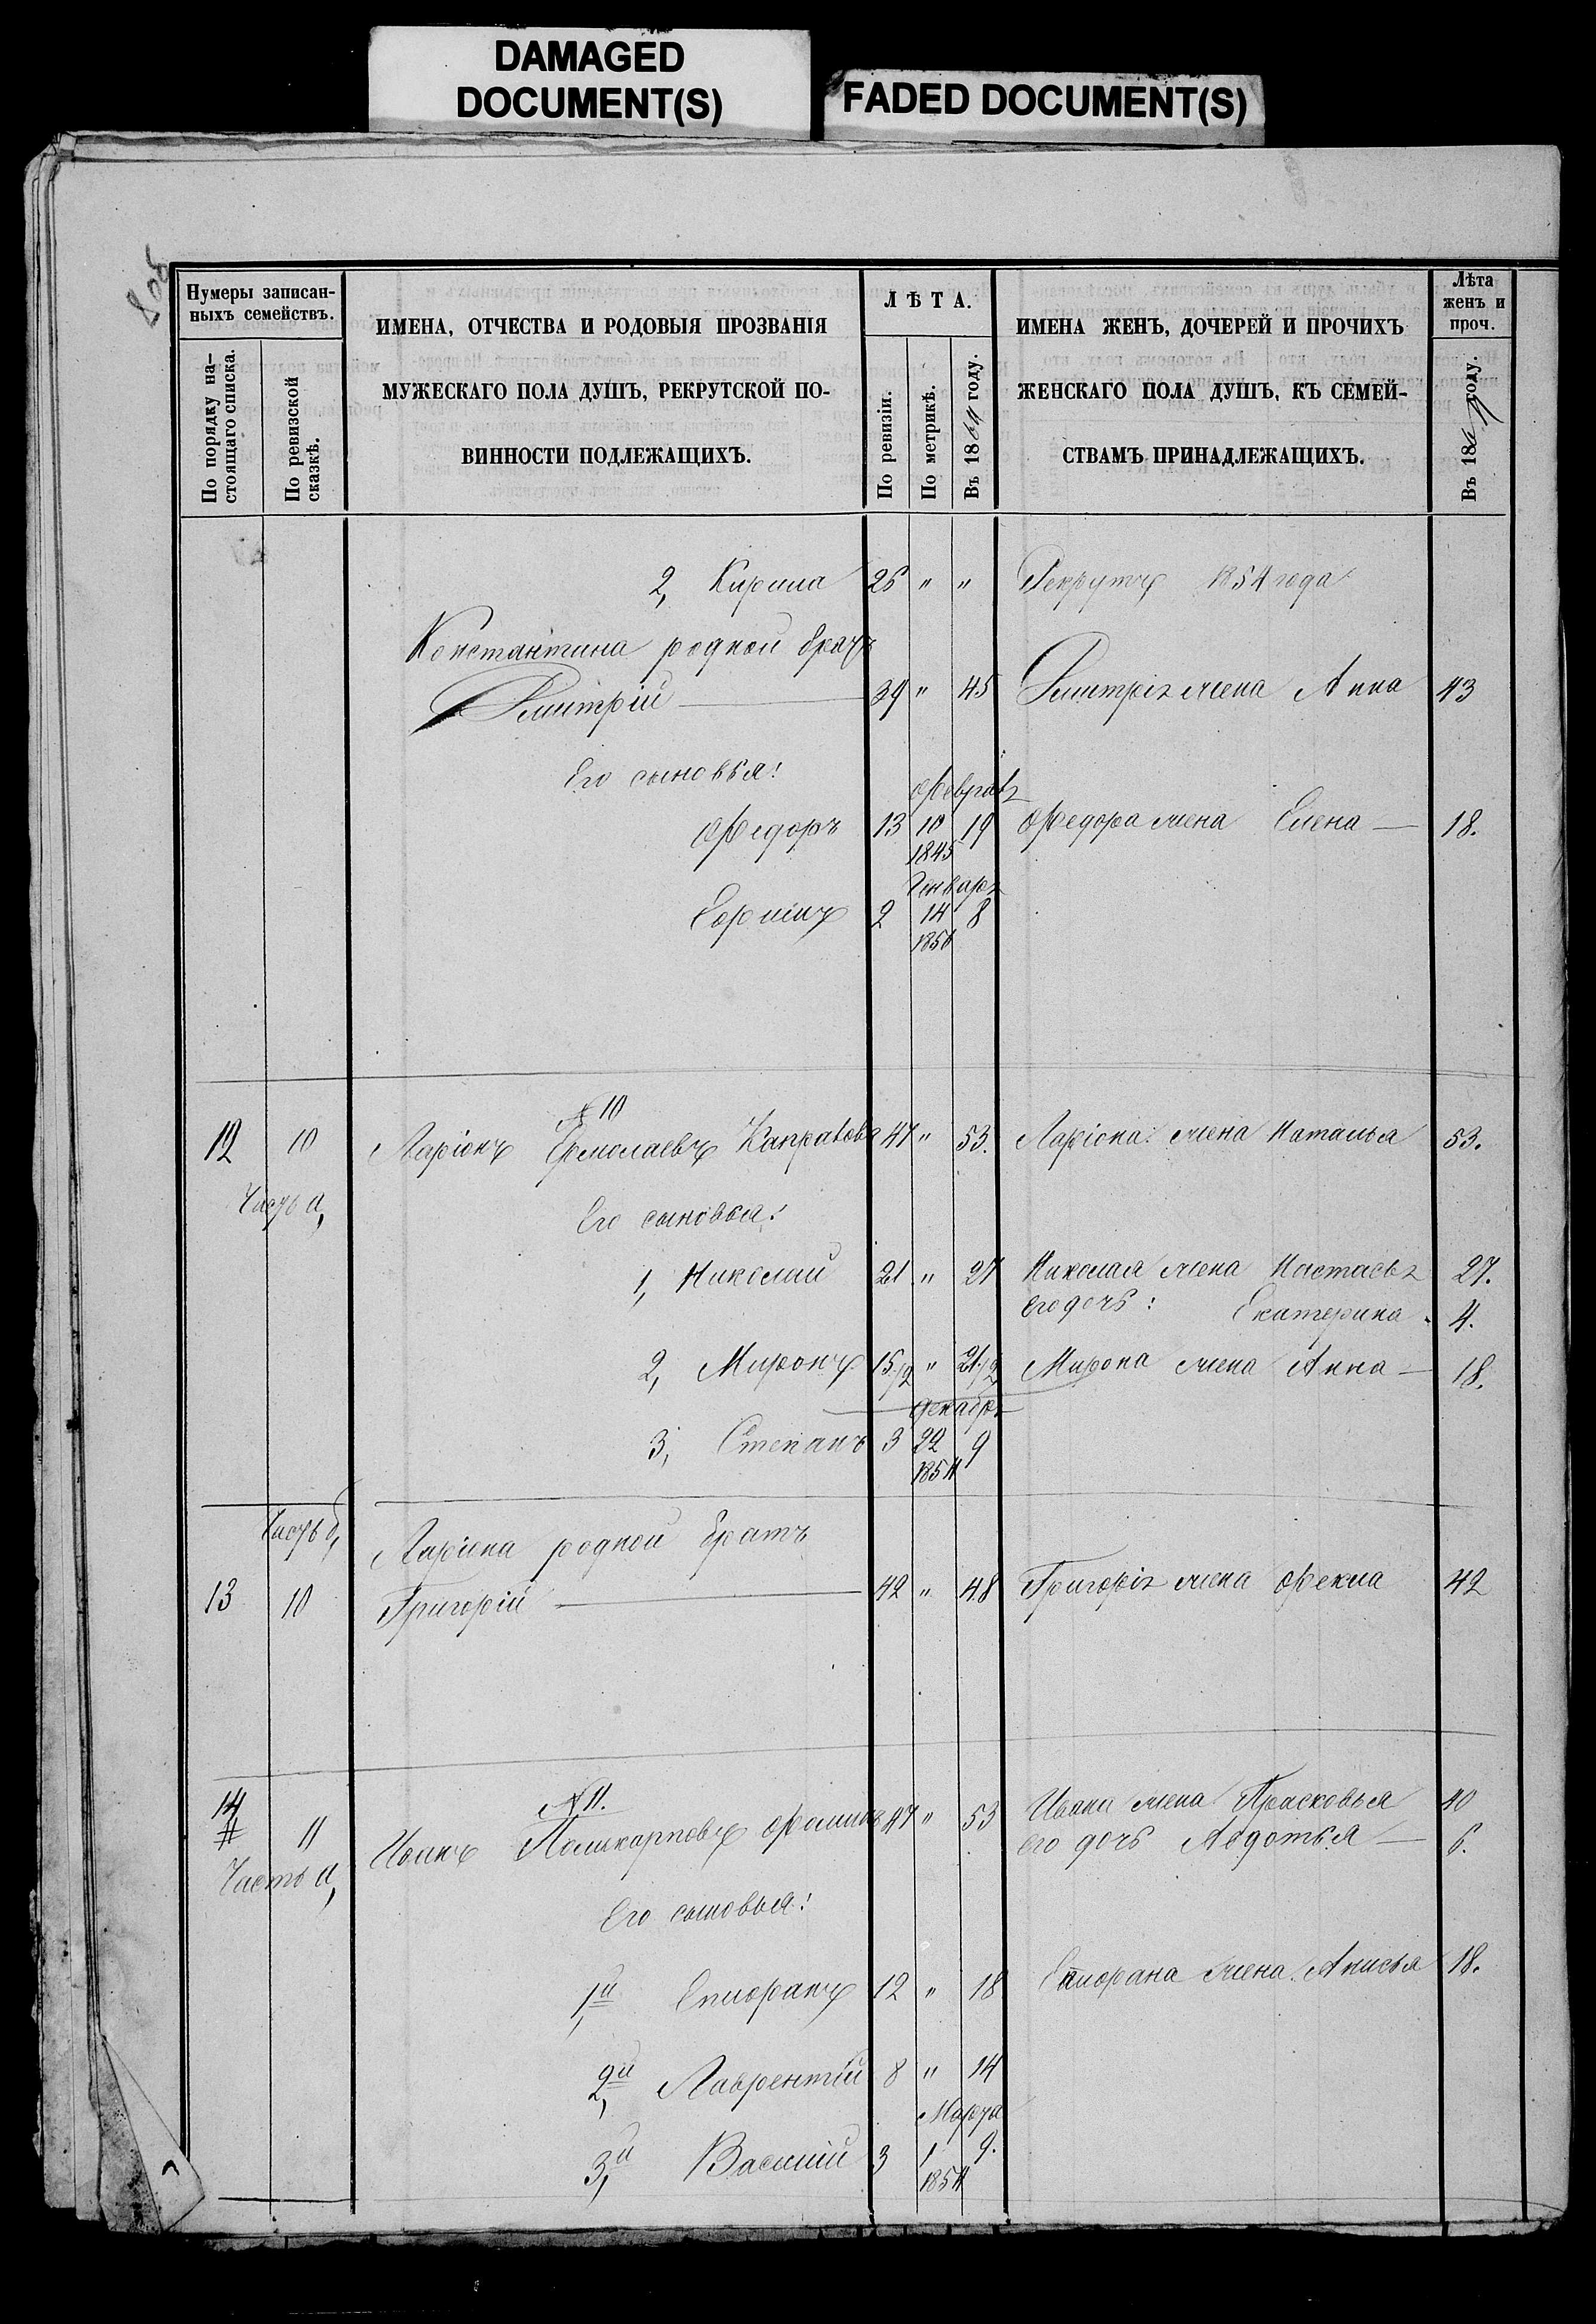 DAMAGED
DOCUMENT(S)
FADED DOCUMENT(S)
808
Нумеры записан-
ныхъ семействъ.
По порядку на-
стоящаго списка.
По ревизской
сказкѣ.
ИМЕНА, ОТЧЕСТВА И РОДОВЫЯ ПРОЗВАНІЯ
МУЖЕСКАГО ПОЛА ДУШЪ, РЕКРУТСКОЙ ПО-
ВИННОСТИ ПОДЛЕЖАЩИХЪ.
ЛѢТА.
По ревизіи.
По метрикѣ.
Въ 1864 году.
ИМЕНА ЖЕНЪ, ДОЧЕРЕЙ И ПРОЧИХЪ
ЖЕНСКАГО ПОЛА ДУШЪ, КЪ СЕМЕЙ-
СТВАМЪ ПРИНАДЛЕЖАЩИХЪ.
Лѣта
женъ и
проч.
Въ 1864 году.
2, Кирила 26 " " Рекрутъ 1854 года
Константина родной братъ
Дмитрій 39 " 45 Дмитрія жена Анна 43
Его сыновья:
Февраля
Федоръ 13 10 19 Федора жена Елена 18.
1845
Генваря
2 14 8
1856
№ 10
12 10 Ларіонъ Ермолаевъ 47 " 53. Ларіона жена Наталья 53.
Часть а,
Его сыновья:
1, Николай 21 " 27 Николая жена Настасья 27.
его дочь: Екатерина 4.
2, Миронъ 15 1/2 " 21 1/2 Мирона жена Анна 18.
Декабря
3, Степанъ 3 22 9
1854
Часть б,
Ларіона родной братъ
13 10 Григорій 42 " 48 Григорія жена Фекла 42
№ 11.
14 11 Иванъ Поликарповъ Фоминъ 47 " 53 Ивана жена Прасковья 40
его дочь Авдотья 6.
Часть а,
Его сыновья:
1й Епифанъ 12 " 18 Епифана жена Анисья 18.
2й Лаврентій 8 " 14
Марта
3й Василій 3 1 9.
1854